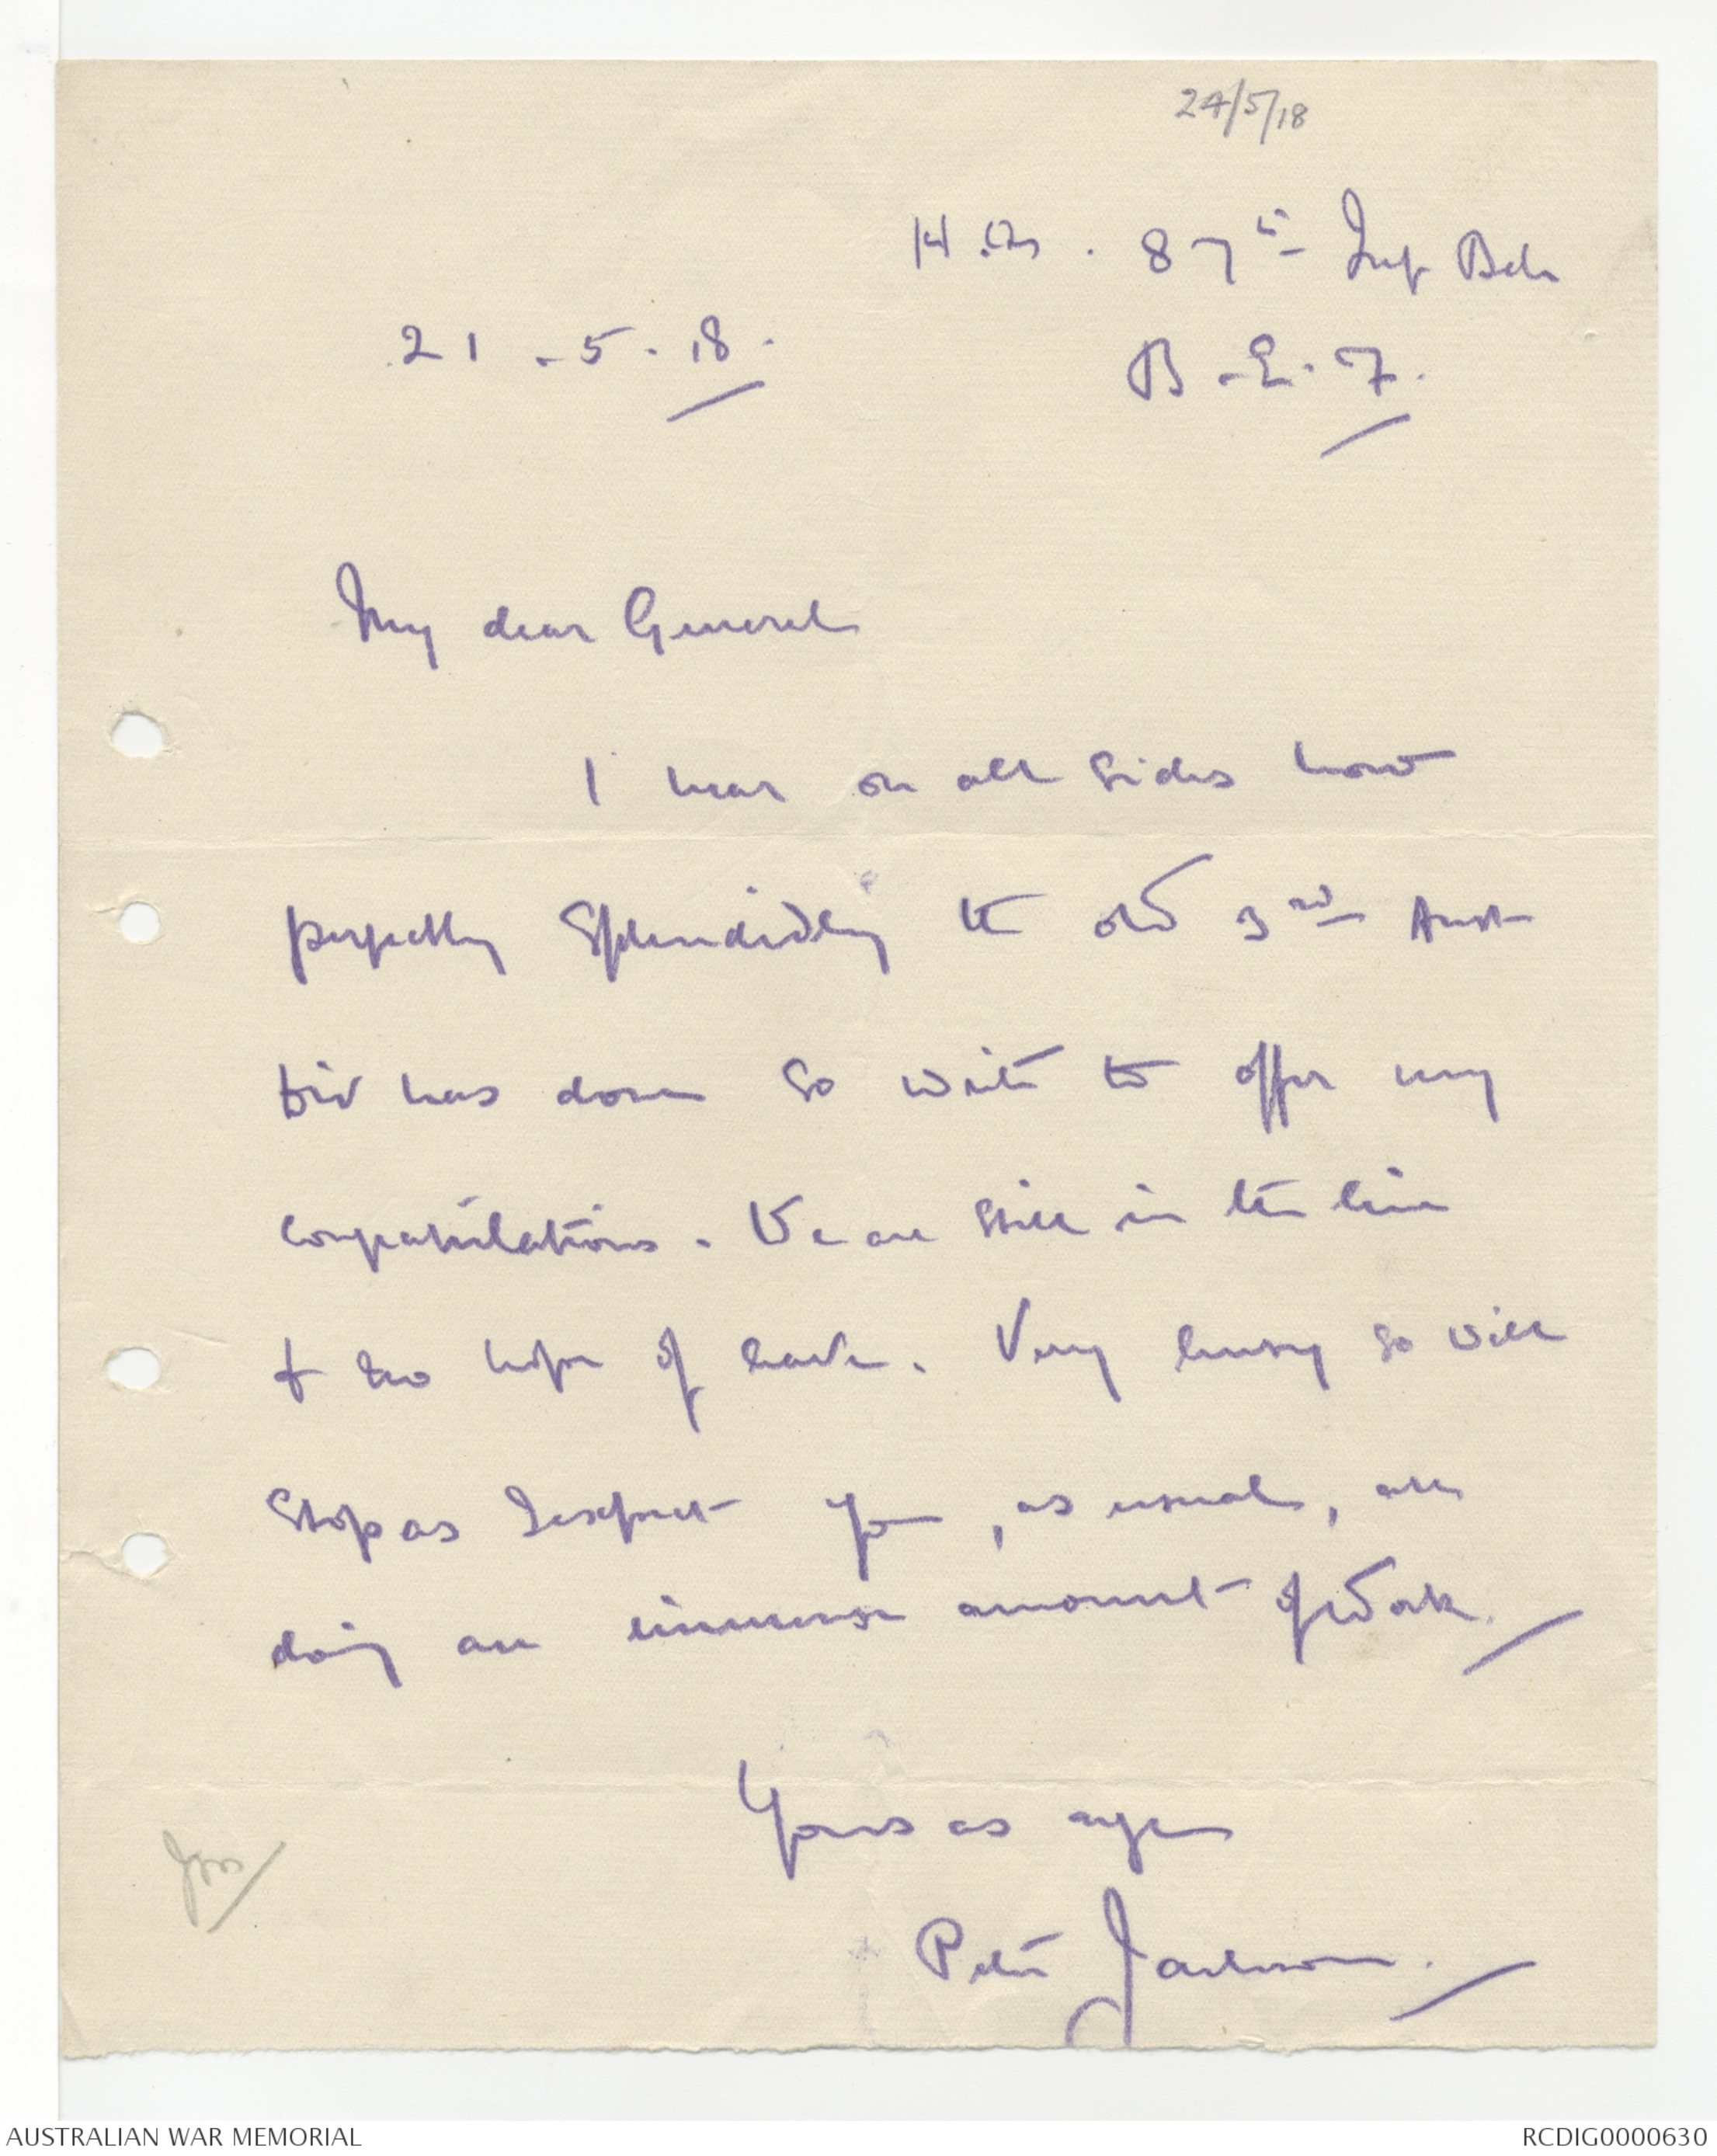 24/5/18
H.Q. 87th Inf Bde
21-5-18. B.E.F.
My dear General
I hear on all sides how
perfectly splendidly the old 3rd Aust
Div has done so write to offer my
congratulations. We are still in the line
& no hope of leave. Very busy so will
stop as I expect you, as usual, are
doing an immense amount of work.
Yours as ever
Peter Jackson.
AUSTRALIAN WAR MEMORIAL
RCDIG0000630